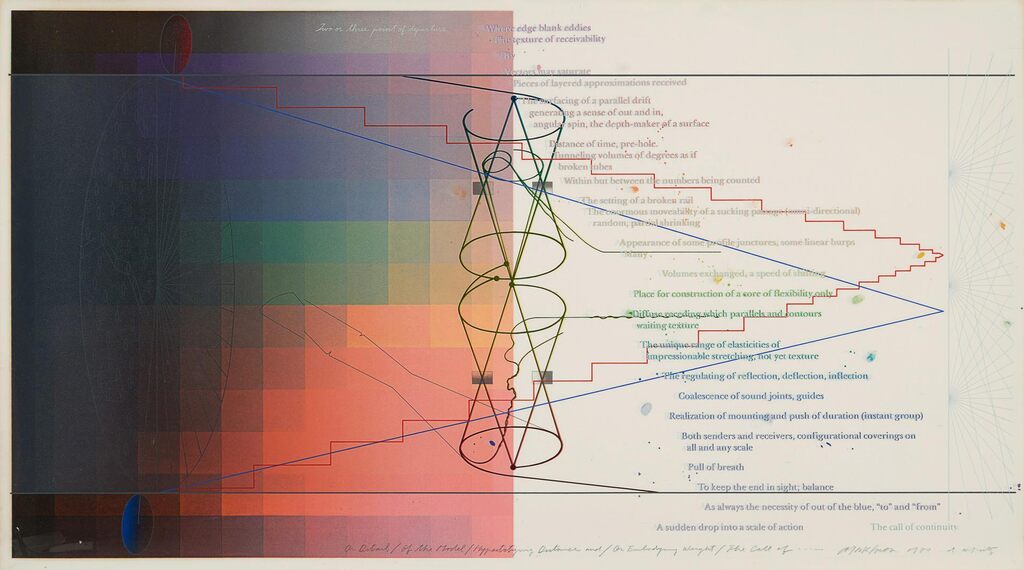 Two or three point of departure
Where edge blank eddies
The texture of receivability
Vectors may saturate
Pieces of layered approximations received
The surfacing of a parallel drift
generating a sense of out and in,
angular spin, the depth-maker of a surface
Distance of time, pre-hole.
Tunneling volumes of degrees as if
broken tubes
Within but between the numbers being counted
The setting of a broken rail
The enormous moveability of a sucking passage (omni-directional)
random, partial shrinking
Appearance of some profile junctures, some linear burps
Many
Volumes exchanged, a speed of shifting
Place for construction of a core of flexibility only
Diffuse receding which parallels and contours
waiting texture
The unique range of elasticities of
impressionable stretching, not yet texture
The regulating of reflection, deflection, inflection
Coalescence of sound joints, guides
Realization of mounting and push of duration (instant group)
Both senders and receivers, configurational coverings on
all and any scale
Pull of breath
To keep the end in sight; balance
As always the necessity of out of the blue, “to” and “from”
A sudden drop into a scale of action
The call of continuity
On Detail / Of the Model / Hypostatizing Distance and / On Embodying Weight / The Call of